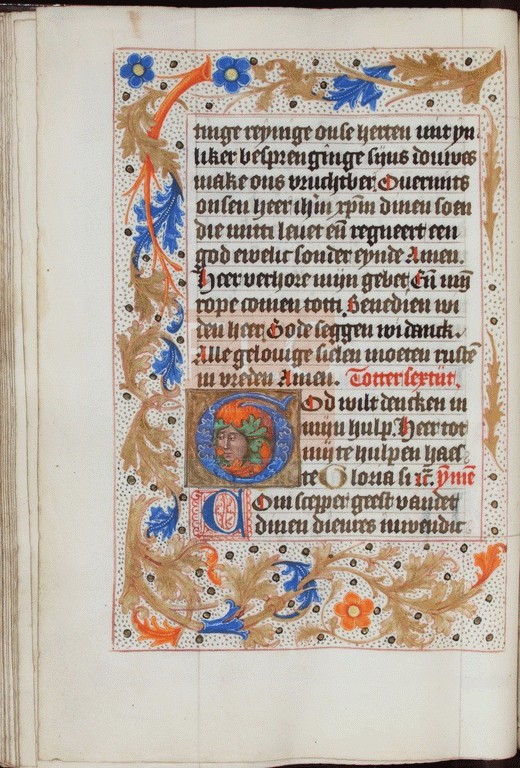 tinge reyninge onse herten uut yn
liker besprenginge sijns douwes
make ons vruchtber Ouerunts
onsen heer ihm xpm dinen soen
die mitti leuet en̄ regneert een
god ewelic sonder eynde Amen.
Heer verhore mijn gebet En̄ mijn
rope comen totti. Benedien wi
den heer Gode seggen wi danck.
Alle gelouige sielen moeten rustē
in vreden Amen. Totter sextijt.
God wilt dencken in
mijn hulp. Heer tot
mij te hulpen haes
te Gloria si rc̄. ymē
Com scepper geest vandel
dinen dienres inwendic